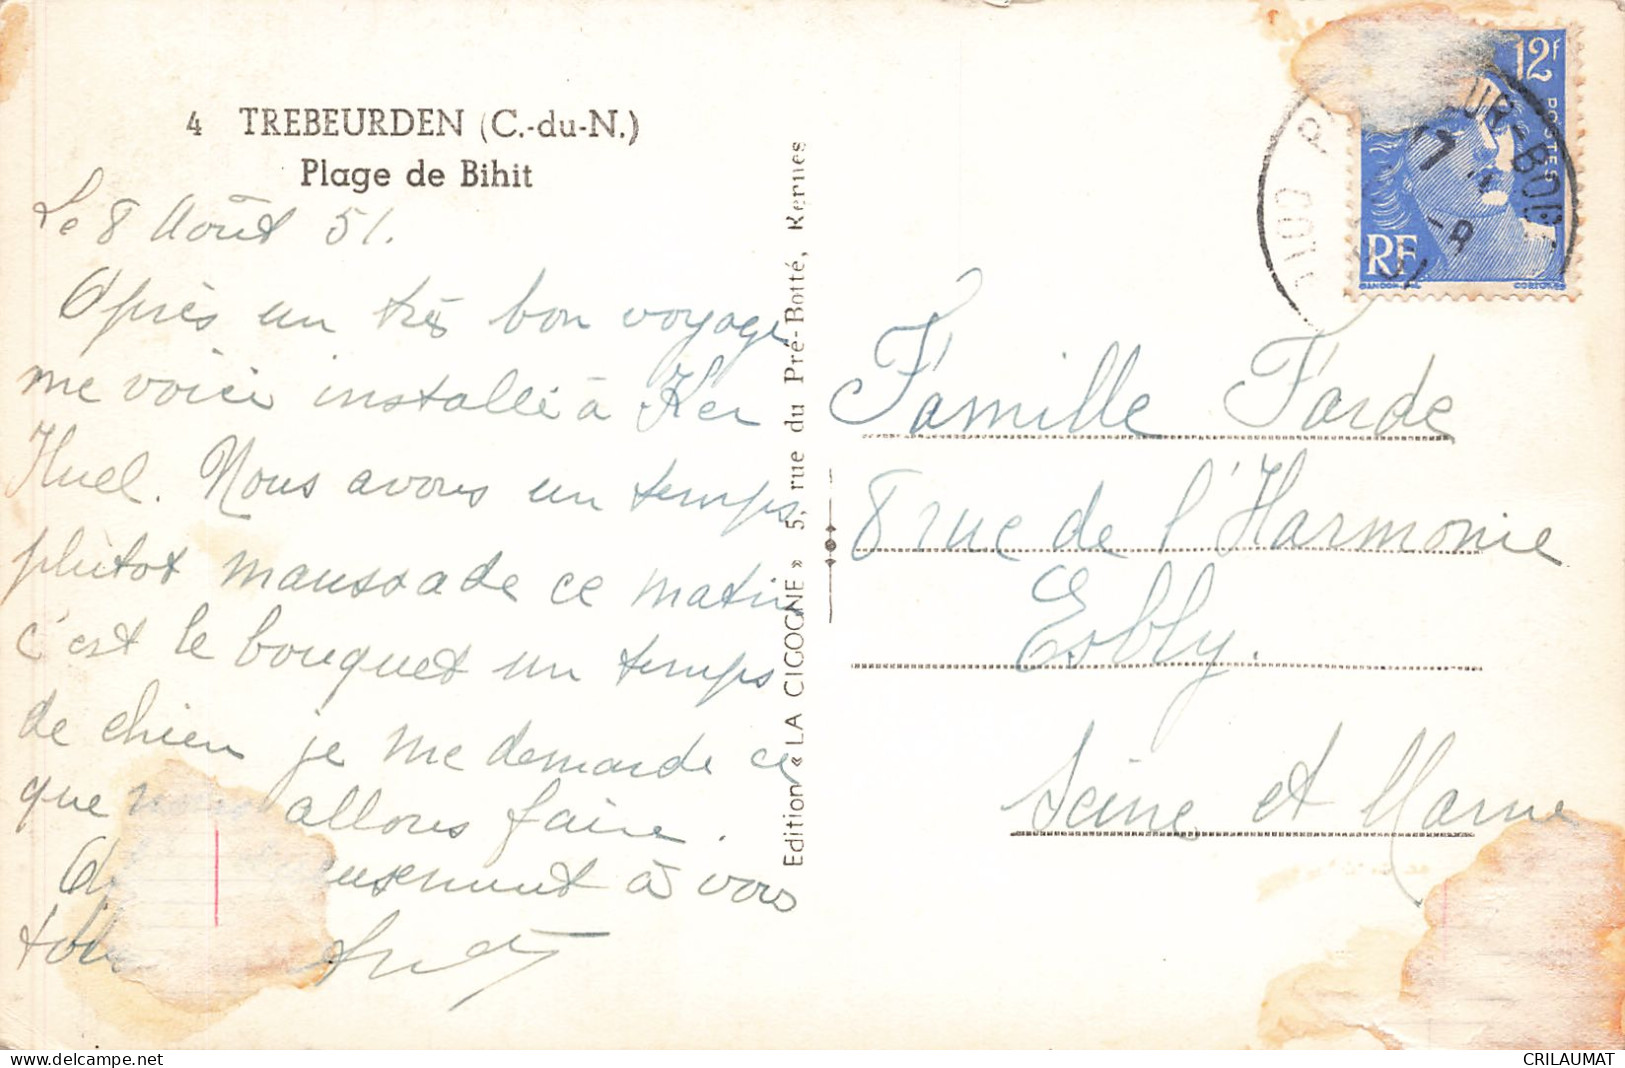 4 TREBEURDEN (C.-du-N.)
Plage de Bihit
Le 8 Août 51.
Après un très bon voyage
me voici installé à Ker
Huel. Nous avons un temps
plûtot maussade ce matin
c'est le bouquet un temps
de chien je me demande ce
que nous allons faire.
à vous
Edition « LA CIGOGNE » 5, rue du Pré-Botté, Rennes
12F
POSTES
RF
GANDON
CORTOT
Famille Farde
8 rue de l'Harmonie
Esbly.
Seine et Marne
CRILAUMAT